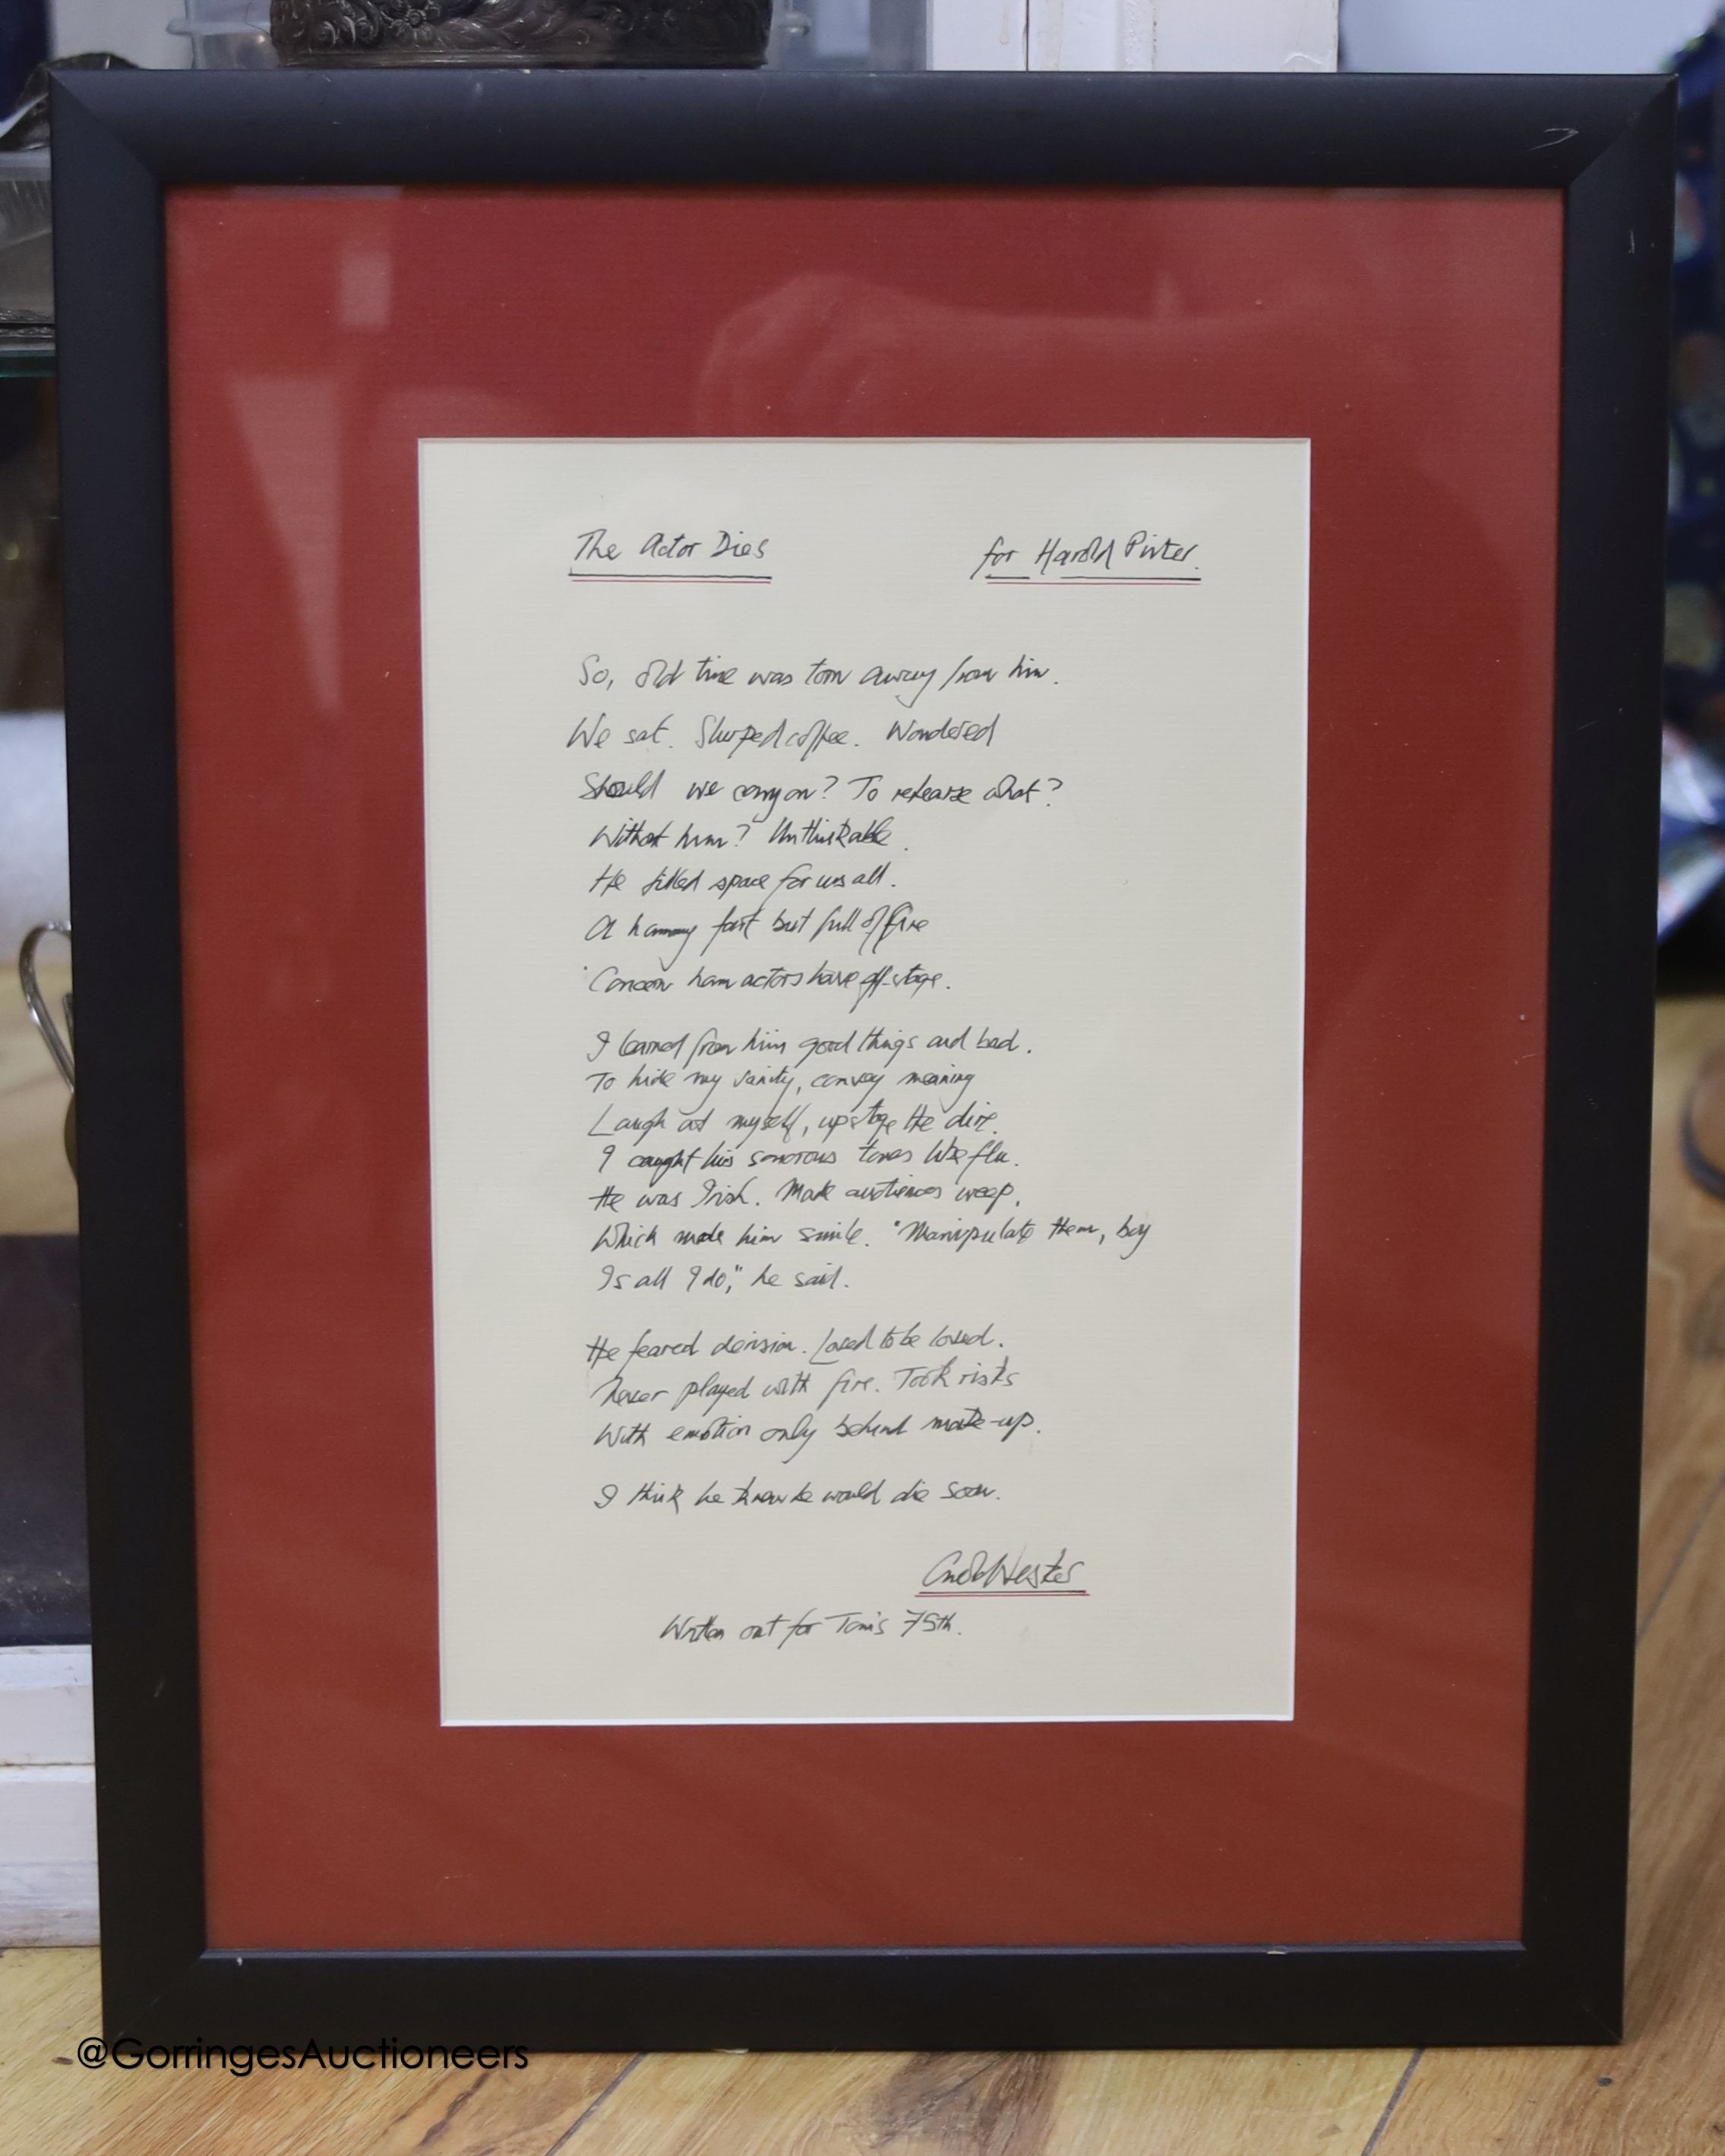 The Actor Dies
for Harold Pinter.
So, old time was torn away from him.
We sat. Slurped coffee. Wondered
Should we carry on? To rehearse what?
Without him? Unthinkable.
He filled space for us all.
A hammy fart but full of fire
Concern ham actors have off-stage.
I learned from him good things and bad.
To hide my vanity, convey meaning
Laugh at myself, upstage the dire.
I caught his sonorous tones like flu.
He was Irish. Made audiences weep,
Which made him smile. "Manipulate them, boy
Is all I do," he said.
He feared derision. Loved to be loved.
Never played with fire. Took risks
With emotion only behind make-up.
I think he knew he would die soon.
Arnold Wesker
Written out for Tom's 75th.
@GorringesAuctioneers